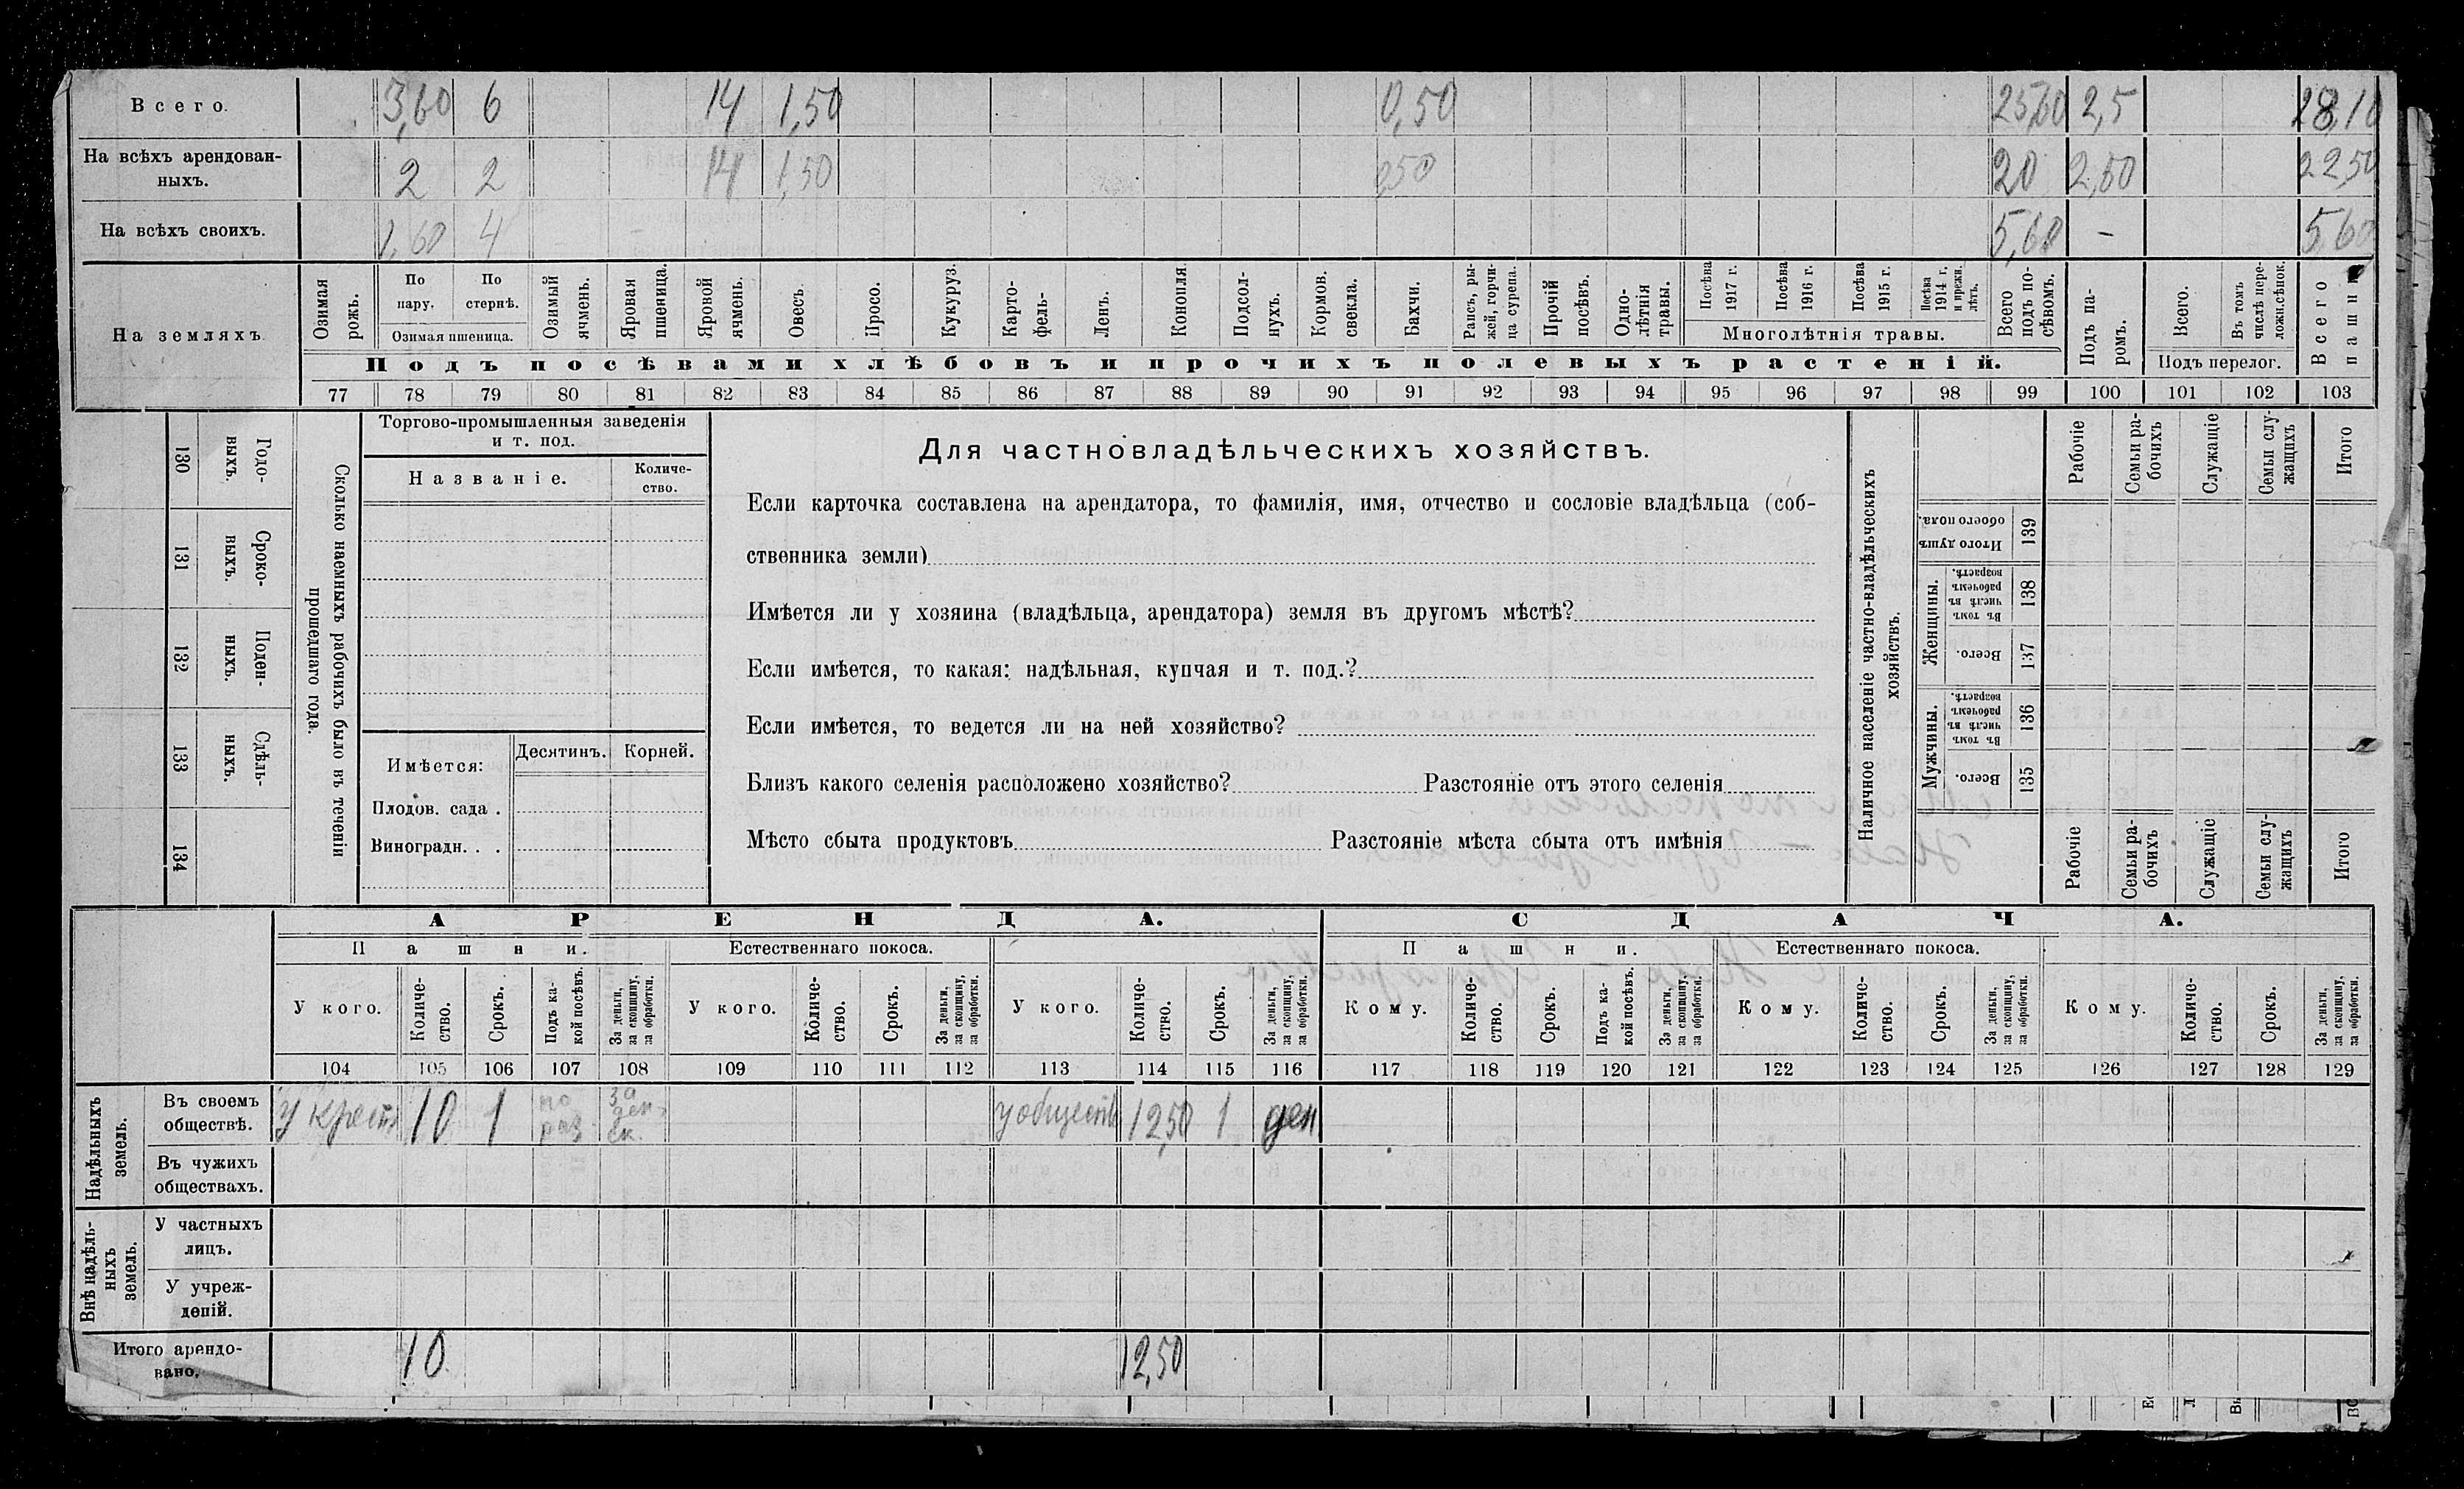 Всего. 3,60 6 14 1,50 0,50 25,60 2,5 28,10
На всѣхъ арендован-
ныхъ. 2 2 14 1,50 0,50 20 2,50 22,50
На всѣхъ своихъ. 1,60 4 5,60 - 5,60
На земляхъ
Озимая рожь.
По пару.
По стернѣ.
Озимая пшеница.
Озимый ячмень.
Яровая пшеница.
Яровой ячмень.
Овесъ.
Просо.
Кукуруз.
Карто-
фель-
Ленъ.
Конопля.
Подсол-
нухъ.
Кормов. свекла.
Бахчи.
Рапсъ, ры-
жей, горчи-
ца сурепа.
Прочій посѣвъ.
Одно-
лѣтнія травы.
Посѣва 1917 г.
Посѣва 1916 г.
Посѣва 1915 г.
Посѣва 1914 г. и прежн. лѣтъ.
Многолѣтнія травы.
Всего подъ по-
сѣвомъ.
Подъ па-
ромъ.
Всего.
Въ томъ числѣ пере-
ложн.сѣнок.
Подъ перелог.
Всего пашни
Подъ посѣвами хлѣбовъ и прочихъ полевыхъ растеній.
77 78 79 80 81 82 83 84 85 86 87 88 89 90 91 92 93 94 95 96 97 98 99 100 101 102 103
130 Годо-
выхъ.
131 Сроко-
выхъ.
132 Поден-
ныхъ.
133 Сдѣль-
ныхъ.
134
Сколько наемныхъ рабочихъ было въ теченіи
прошедшаго года.
Торгово-промышленныя заведенія
и т. под.
Названіе.
Количе-
ство.
Имѣется:
Десятинъ. Корней.
Плодов. сада .
Виноградн. . .
Для частновладѣльческихъ хозяйствъ.
Если карточка составлена на арендатора, то фамилія, имя, отчество и сословіе владѣльца (соб-
ственника земли)
Имѣется ли у хозяина (владѣльца, арендатора) земля въ другомъ мѣстѣ?
Если имѣется, то какая: надѣльная, купчая и т. под.?
Если имѣется, то ведется ли на ней хозяйство?
Близъ какого селенія расположено хозяйство? Разстояніе отъ этого селенія
Мѣсто сбыта продуктовъ Разстояніе мѣста сбыта отъ имѣнія
Наличное населеніе частно-владѣльческихъ
хозяйствъ.
Рабочіе
Семьи ра-
бочихъ
Служащіе
Семьи слу-
жащихъ
Итого
Итого душъ обоего пола. 139
Женщины.
Въ томъ числѣ въ рабочемъ возрастѣ. 138
Всего. 137
Мужчины.
Въ томъ числѣ въ рабочемъ возрастѣ. 136
Всего. 135
Рабочіе
Семьи ра-
бочихъ
Служащіе
Семьи слу-
жащихъ
Итого
АРЕНДА. СДАЧА.
Пашни. Естественнаго покоса. Пашни. Естественнаго покоса.
У кого.
Количе-
ство.
Срокъ.
Подъ ка-
кой посѣвъ.
За деньги, за скопщину, за обработки.
У кого.
Количе-
ство.
Срокъ.
За деньги, за скопщину, за обработки.
У кого.
Количе-
ство.
Срокъ.
За деньги, за скопщину, за обработки.
Кому.
Количе-
ство.
Срокъ.
Подъ ка-
кой посѣвъ.
За деньги, за скопщину, за обработки.
Кому.
Количе-
ство.
Срокъ.
За деньги, за скопщину, за обработки.
Кому.
Количе-
ство.
Срокъ.
За деньги, за скопщину, за обработки.
104 105 106 107 108 109 110 111 112 113 114 115 116 117 118 119 120 121 122 123 124 125 126 127 128 129
Надѣльныхъ земель.
Въ своемъ
обществѣ. у крест 10 1 у обществ 12,50 1 ден
Въ чужихъ
обществахъ.
Внѣ надѣль-
ныхъ земель.
У частныхъ
лицъ.
У учреж-
деній.
Итого арендо-
вано. 10 12,50